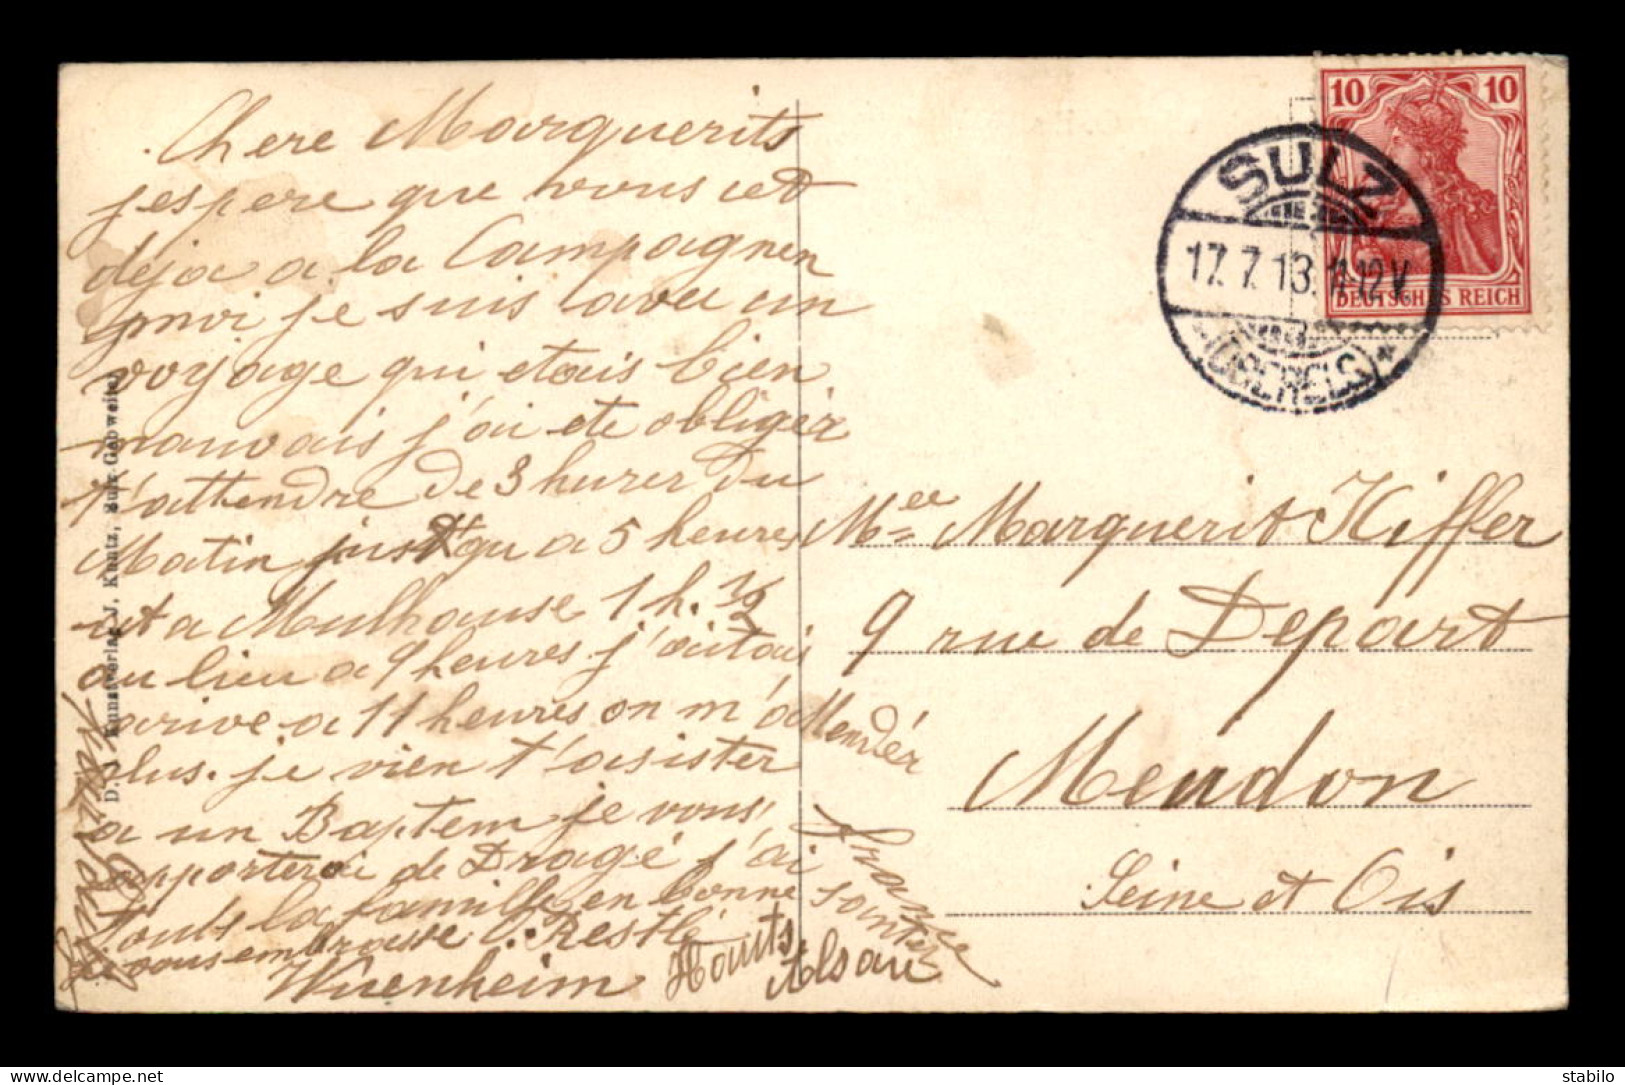 Chere Marguerits
j'espere que vous etes
deja a la Campagnen
moi je suis avu un
voyage qui etais bien
mauvais j'ai ete obligér
t'attendre de 3 hurer du
Matin jusqu a 5 heures
et a Mulhouse 1 h. ½
au lieu a 9 heures j'aitais
arive a 11 heures on m'a Mender
plus. je vien t'asister
a un Baptem je vous
apporterai de Dragé j'ai
touts la famille en bonne santer
je vous embrasse
Wuenheim Houts Alsace
D. J. Kunstverlag J. Kuntz, Sulz-Gebweiler
10 10
DEUTSCHES REICH
SULZ
17.7.13. 11-12 V.
(OBERELS.) *
Mee Marguerit Kiffer
9 rue de Depart
Meudon
Seine et Ois
France
stabilo